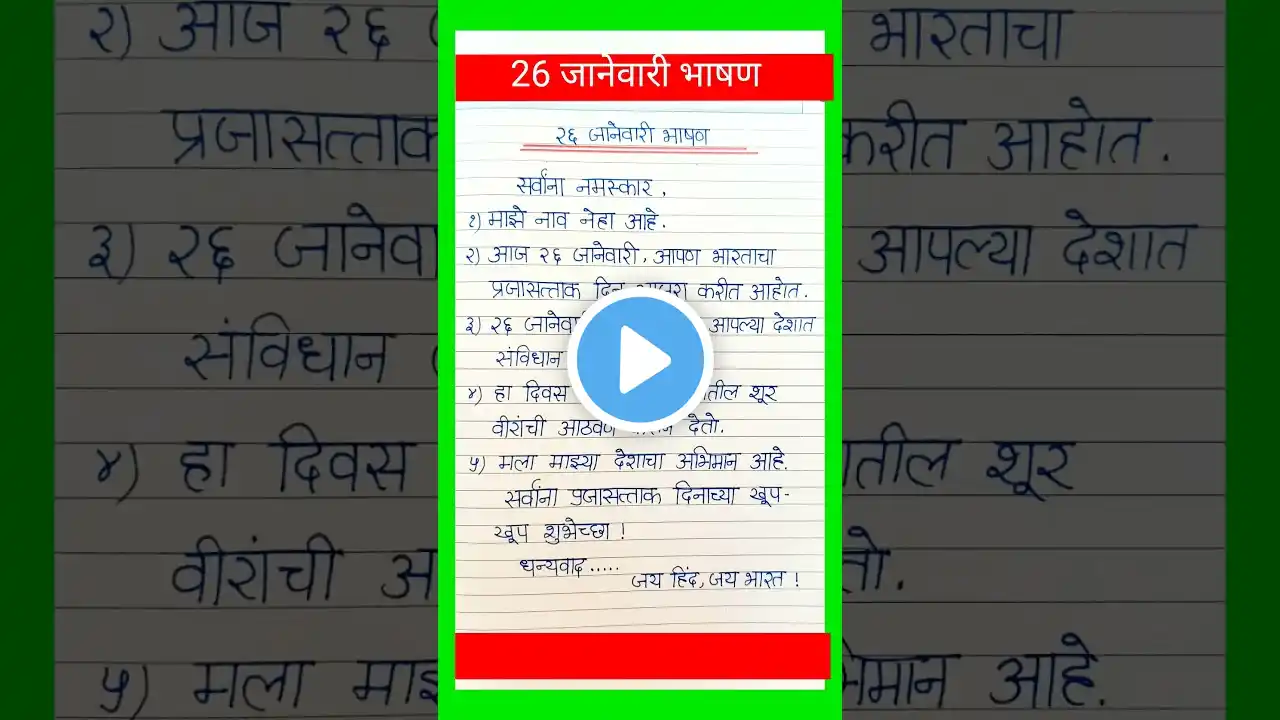 26 जानेवारी भाषण
२६ जानेवारी भाषण
सर्वांना नमस्कार,
१) माझे नाव नेहा आहे.
२) आज २६ जानेवारी, आपण भारताचा
प्रजासत्ताक दिन करीत आहोत.
३) २६ जानेवारी आपल्या देशात
संविधान
४) हा दिवस शूर
वीरांची आठवण देतो.
५) मला माझ्या देशाचा अभिमान आहे.
सर्वांना प्रजासत्ताक दिनाच्या खूप-
खूप शुभेच्छा !
धन्यवाद.....
जय हिंद, जय भारत !